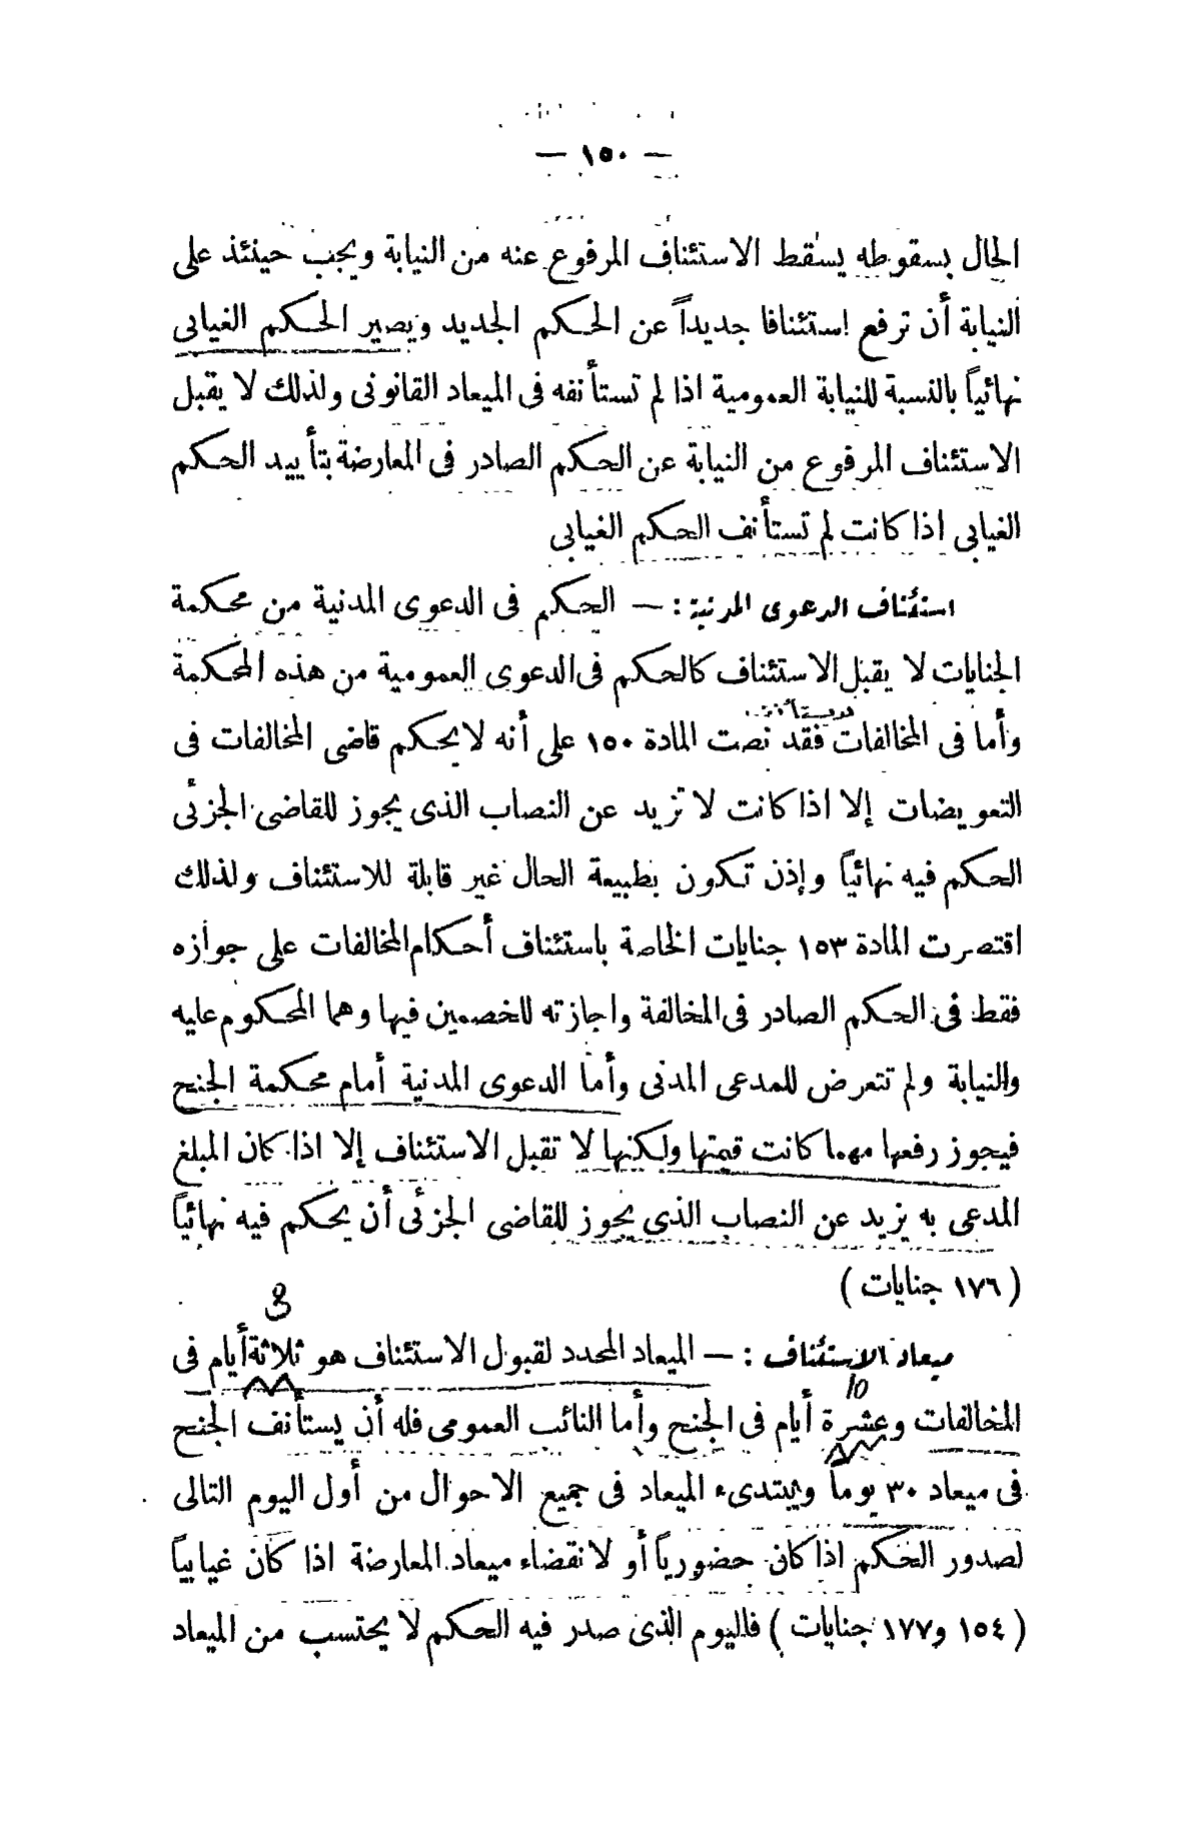 — ١٥٠ —
الحال بسقوطه يسقط الاستئناف المرفوع عنه من النيابة ويجب حينئذ على
النيابة أن ترفع استئنافا جديداً عن الحكم الجديد ويصير الحكم الغيابى
نهائياً بالنسبة للنيابة العمومية اذا لم تستأنفه فى الميعاد القانونى ولذلك لا يقبل
الاستئناف المرفوع من النيابة عن الحكم الصادر فى المعارضة بتأييد الحكم
الغيابى اذا كانت لم تستأنف الحكم الغيابى
استئناف الدعوى المدنية : — الحكم فى الدعوى المدنية من محكمة
الجنايات لا يقبل الاستئناف كالحكم فى الدعوى العمومية من هذه المحكمة
وأما فى المخالفات فقد نصت المادة ١٥٠ على أنه لا يحكم قاضى المخالفات فى
التعويضات إلا اذا كانت لا تزيد عن النصاب الذى يجوز للقاضى الجزئى
الحكم فيه نهائياً وإذن تكون بطبيعة الحال غير قابلة للاستئناف ولذلك
اقتصرت المادة ١٥٣ جنايات الخاصة باستئناف أحكام المخالفات على جوازه
فقط فى الحكم الصادر فى المخالفة واجازته للخصمين فيها وهما المحكوم عليه
والنيابة ولم تتعرض للمدعى المدنى وأما الدعوى المدنية أمام محكمة الجنح
فيجوز رفعها مهما كانت قيمتها ولكنها لا تقبل الاستئناف إلا اذا كان المبلغ
المدعى به يزيد عن النصاب الذى يجوز للقاضى الجزئى أن يحكم فيه نهائياً
( ١٧٦ جنايات )
3
ميعاد الاستئناف : — الميعاد المحدد لقبول الاستئناف هو ثلاثة أيام فى
10
المخالفات وعشرة أيام فى الجنح وأما النائب العمومى فله أن يستأنف الجنح
فى ميعاد ٣٠ يوماً ويبتدىء الميعاد فى جميع الاحوال من أول اليوم التالى
لصدور الحكم اذا كان حضورياً أو لانقضاء ميعاد المعارضة اذا كان غيابياً
( ١٥٤ و١٧٧ جنايات ) فاليوم الذى صدر فيه الحكم لا يحتسب من الميعاد